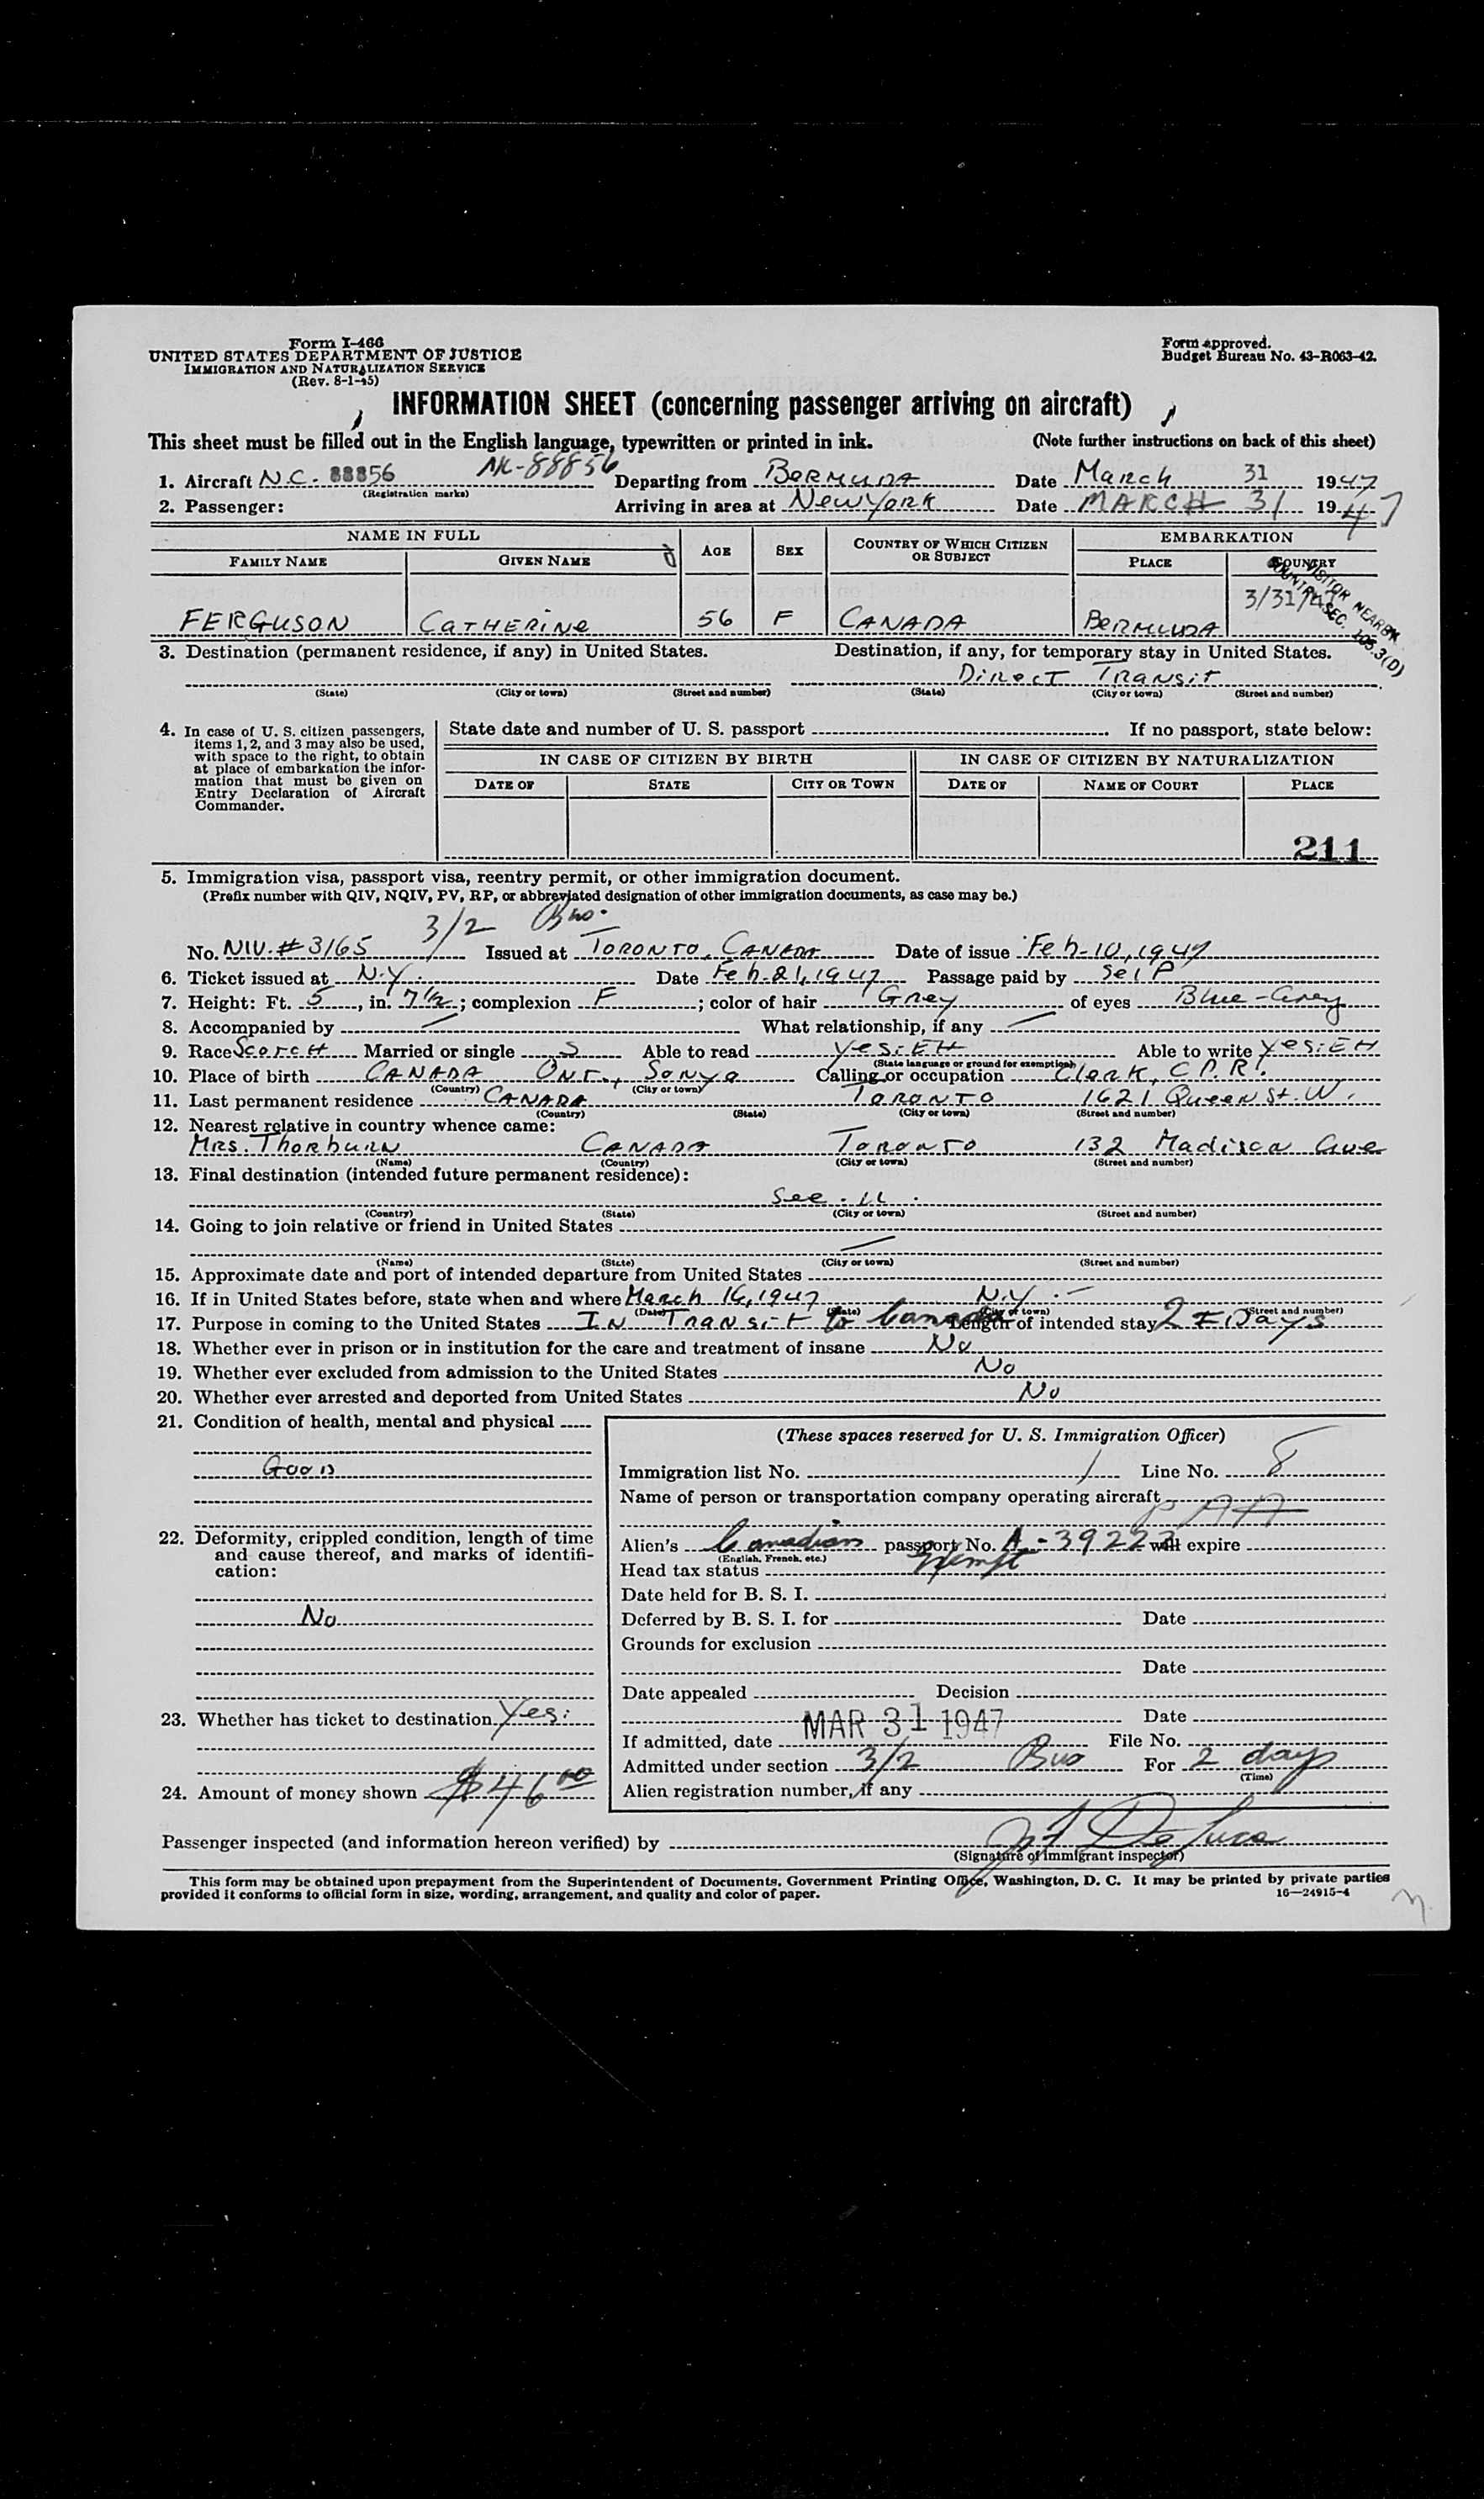 Form I-466
UNITED STATES DEPARTMENT OF JUSTICE
IMMIGRATION AND NATURALIZATION SERVICE
(Rev. 8-1-45)
Form approved.
Budget Bureau No. 43-R063-42.
INFORMATION SHEET (concerning passenger arriving on aircraft)
This sheet must be filled out in the English language, typewritten or printed in ink. (Note further instructions on back of this sheet)
1. Aircraft N.C. 88856 NC-88856 Departing from BERMUDA Date March 31 1947
(Registration marks)
2. Passenger: Arriving in area at New York Date MARCH 31 1947
NAME IN FULL AGE SEX COUNTRY OF WHICH CITIZEN OR SUBJECT EMBARKATION
FAMILY NAME GIVEN NAME PLACE COUNTRY
3/31/47
VISITOR NEARBY
COUNTRY SEC. 105.3(D)
FERGUSON CATHERINE 56 F CANADA BERMUDA
3. Destination (permanent residence, if any) in United States. Destination, if any, for temporary stay in United States.
Direct Transit
(State) (City or town) (Street and number) (State) (City or town) (Street and number)
4. In case of U. S. citizen passengers, items 1, 2, and 3 may also be used, with space to the right, to obtain at place of embarkation the information that must be given on Entry Declaration of Aircraft Commander.
State date and number of U. S. passport If no passport, state below:
IN CASE OF CITIZEN BY BIRTH IN CASE OF CITIZEN BY NATURALIZATION
DATE OF STATE CITY OR TOWN DATE OF NAME OF COURT PLACE
211
5. Immigration visa, passport visa, reentry permit, or other immigration document.
(Prefix number with QIV, NQIV, PV, RP, or abbreviated designation of other immigration documents, as case may be.)
3/2 Bus.
No. NIV. #3165 Issued at TORONTO, CANADA Date of issue Feb-10, 1947
6. Ticket issued at N.Y. Date Feb. 21, 1947 Passage paid by Self
7. Height: Ft. 5, in. 7 1/2; complexion F; color of hair Grey of eyes Blue-Grey
8. Accompanied by — What relationship, if any —
9. Race Scotch Married or single S Able to read Yes: EH Able to write Yes: EH
(State language or ground for exemption)
10. Place of birth CANADA ONT., Sonya Calling or occupation Clerk, C.P.R.
(Country) (City or town)
11. Last permanent residence CANADA TORONTO 1621 Queen St. W.
(Country) (State) (City or town) (Street and number)
12. Nearest relative in country whence came:
Mrs. Thorburn CANADA TORONTO 132 Madison Ave
(Name) (Country) (City or town) (Street and number)
13. Final destination (intended future permanent residence):
See. 11.
(Country) (State) (City or town) (Street and number)
14. Going to join relative or friend in United States
—
(Name) (State) (City or town) (Street and number)
15. Approximate date and port of intended departure from United States
16. If in United States before, state when and where March 16, 1947 N.Y.
(Date) (State) (City or town) (Street and number)
17. Purpose in coming to the United States In Transit to Canada Length of intended stay 2 Days
18. Whether ever in prison or in institution for the care and treatment of insane No
19. Whether ever excluded from admission to the United States No
20. Whether ever arrested and deported from United States No
21. Condition of health, mental and physical
Good
22. Deformity, crippled condition, length of time and cause thereof, and marks of identification:
No
23. Whether has ticket to destination Yes:
24. Amount of money shown $46 00
(These spaces reserved for U. S. Immigration Officer)
Immigration list No. 1 Line No. 8
Name of person or transportation company operating aircraft
PAA
Alien's Canadian passport No. A-39223 will expire
(English, French, etc.)
Head tax status Exempt
Date held for B. S. I.
Deferred by B. S. I. for Date
Grounds for exclusion
Date
Date appealed Decision
Date
If admitted, date MAR 31 1947 File No.
Admitted under section 3/2 Bus For 2 days
(Time)
Alien registration number, if any
Passenger inspected (and information hereon verified) by
(Signature of immigrant inspector)
This form may be obtained upon prepayment from the Superintendent of Documents, Government Printing Office, Washington, D. C. It may be printed by private parties
provided it conforms to official form in size, wording, arrangement, and quality and color of paper. 16—24915-4